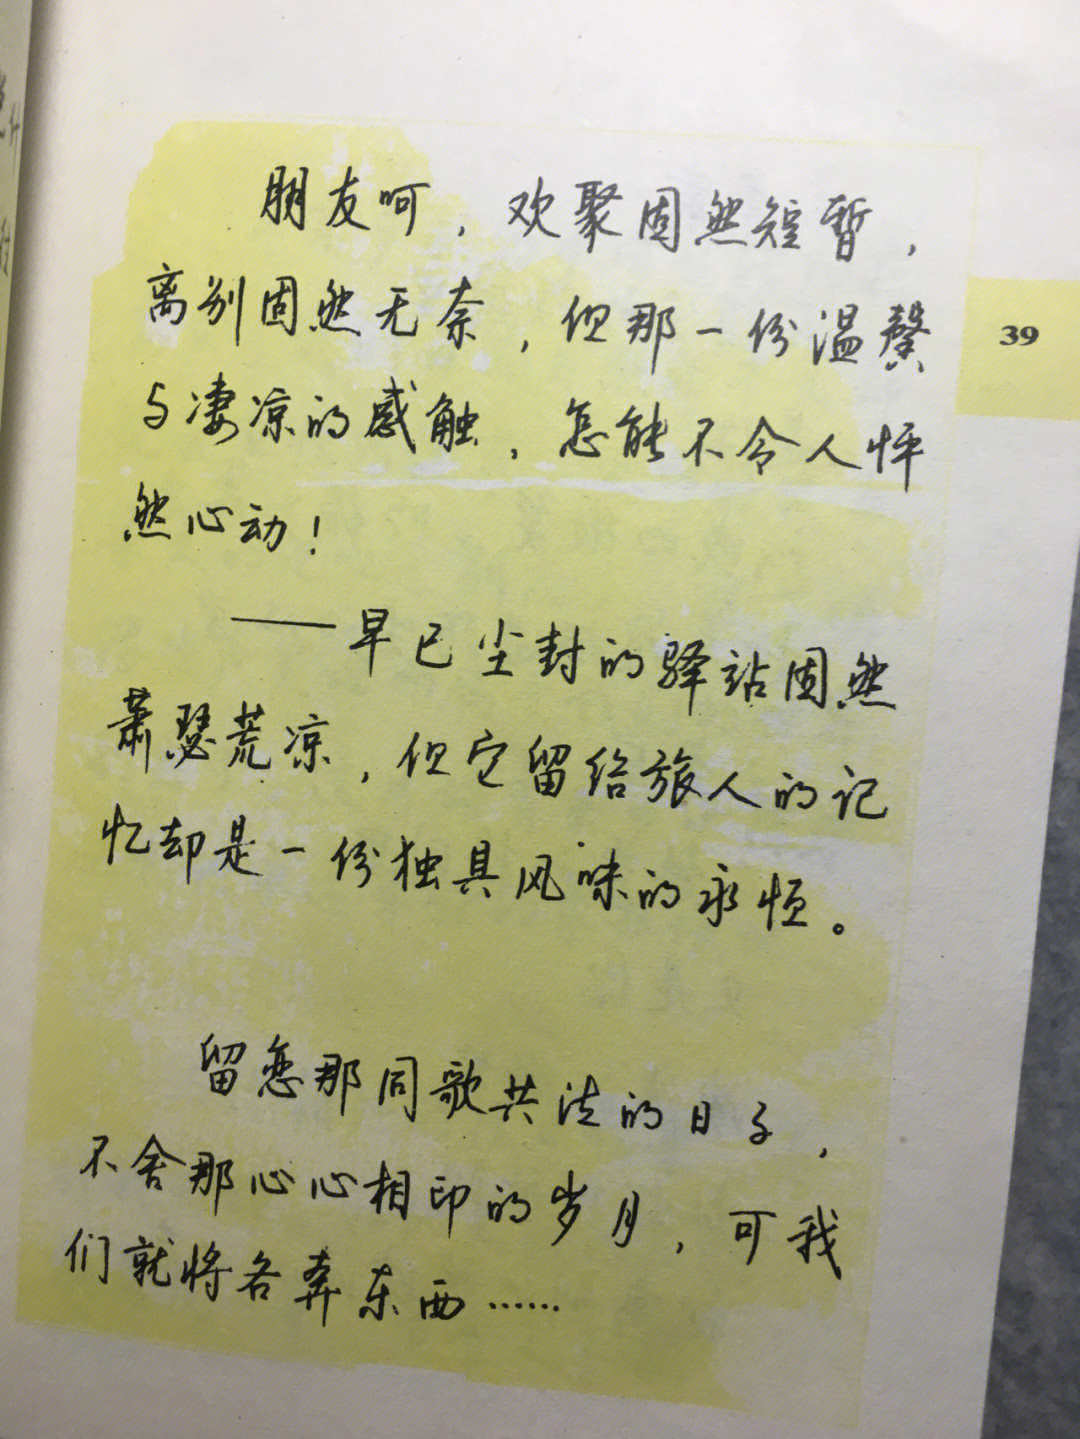 朋友呵，欢聚固然短暂，
离别固然无奈，但那一份温馨
39
与凄凉的感触，怎能不令人怦
然心动！
——早已尘封的驿站固然
萧瑟荒凉，但它留给旅人的记
忆却是一份独具风味的永恒。
留恋那同歌共泣的日子，
不舍那心心相印的岁月，可我
们就将各奔东西……